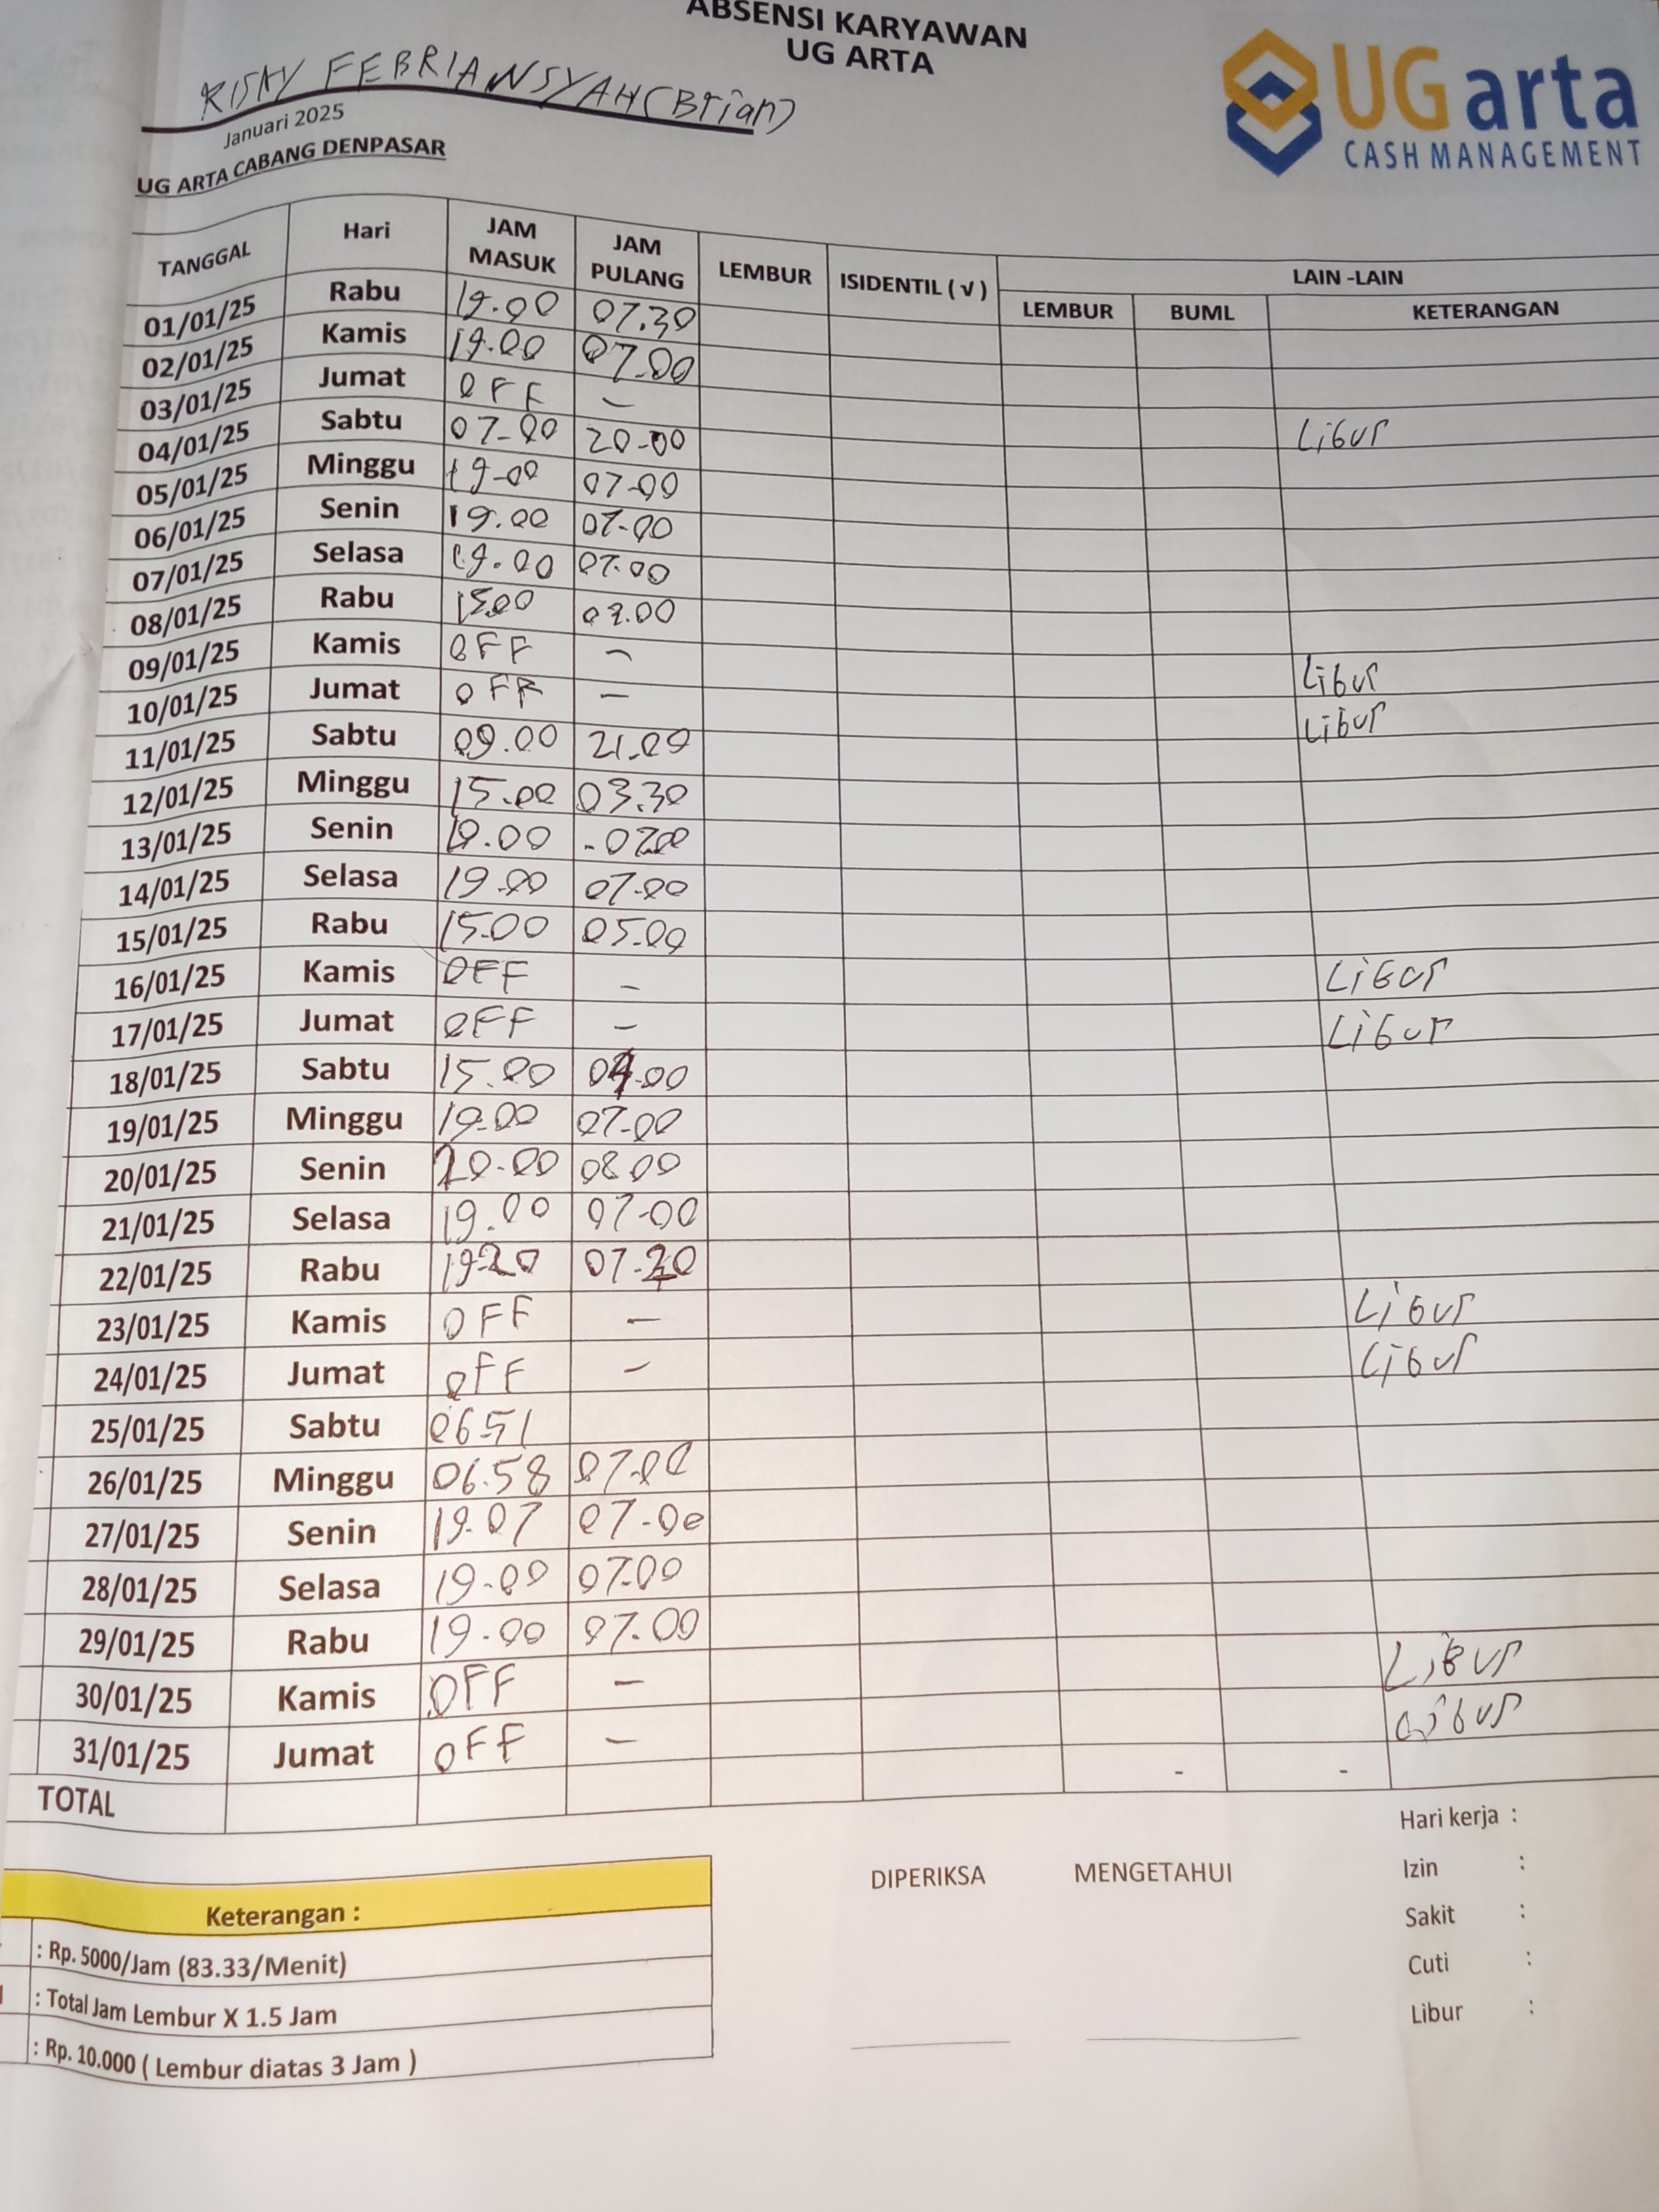 ABSENSI KARYAWAN
UG ARTA
UG arta
CASH MANAGEMENT
RISKY FEBRIANSYAH (Brian)
Januari 2025
UG ARTA CABANG DENPASAR
TANGGAL Hari JAM MASUK JAM PULANG LEMBUR ISIDENTIL (√) LAIN -LAIN
LEMBUR BUML KETERANGAN
01/01/25 Rabu 19.00 07.30
02/01/25 Kamis 19.00 07.00
03/01/25 Jumat OFF – Libur
04/01/25 Sabtu 07-00 20-00
05/01/25 Minggu 19-00 07-00
06/01/25 Senin 19.00 07-00
07/01/25 Selasa 19.00 07.00
08/01/25 Rabu 15.00
09/01/25 Kamis OFF – Libur
10/01/25 Jumat OFF – Libur
11/01/25 Sabtu 09.00 21.00
12/01/25 Minggu 15.00 03.30
13/01/25 Senin 19.00 -07.00
14/01/25 Selasa 19.00 07-00
15/01/25 Rabu 15.00 05.00
16/01/25 Kamis OFF – Libur
17/01/25 Jumat OFF – Libur
18/01/25 Sabtu 15.00 04.00
19/01/25 Minggu 19-00 07-00
20/01/25 Senin 20-00 08.00
21/01/25 Selasa 19.00 07-00
22/01/25 Rabu 19-20 07-20
23/01/25 Kamis OFF – Libur
24/01/25 Jumat OFF – Libur
25/01/25 Sabtu 06.51
26/01/25 Minggu 06.58 07.00
27/01/25 Senin 19.07 07-00
28/01/25 Selasa 19-00 07.00
29/01/25 Rabu 19.00 07.00
30/01/25 Kamis OFF – Libur
31/01/25 Jumat OFF – Libur
TOTAL - -
Keterangan :
: Rp. 5000/Jam (83.33/Menit)
: Total Jam Lembur X 1.5 Jam
: Rp. 10.000 ( Lembur diatas 3 Jam )
DIPERIKSA MENGETAHUI
Hari kerja :
Izin :
Sakit :
Cuti :
Libur :